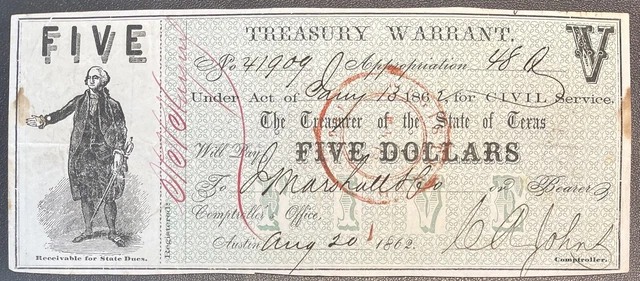 FIVE
TREASURY WARRANT.
V
No 41909 Appropriation 48
Under Act of Jany 13 1862, for CIVIL Service.
The Treasurer of the State of Texas
Will Pay FIVE DOLLARS
To J Marshall & Co or Bearer
FIVE
Comptroller's Office,
Austin Aug 20 1862.
Registered
Receivable for State Dues.
Comptroller.